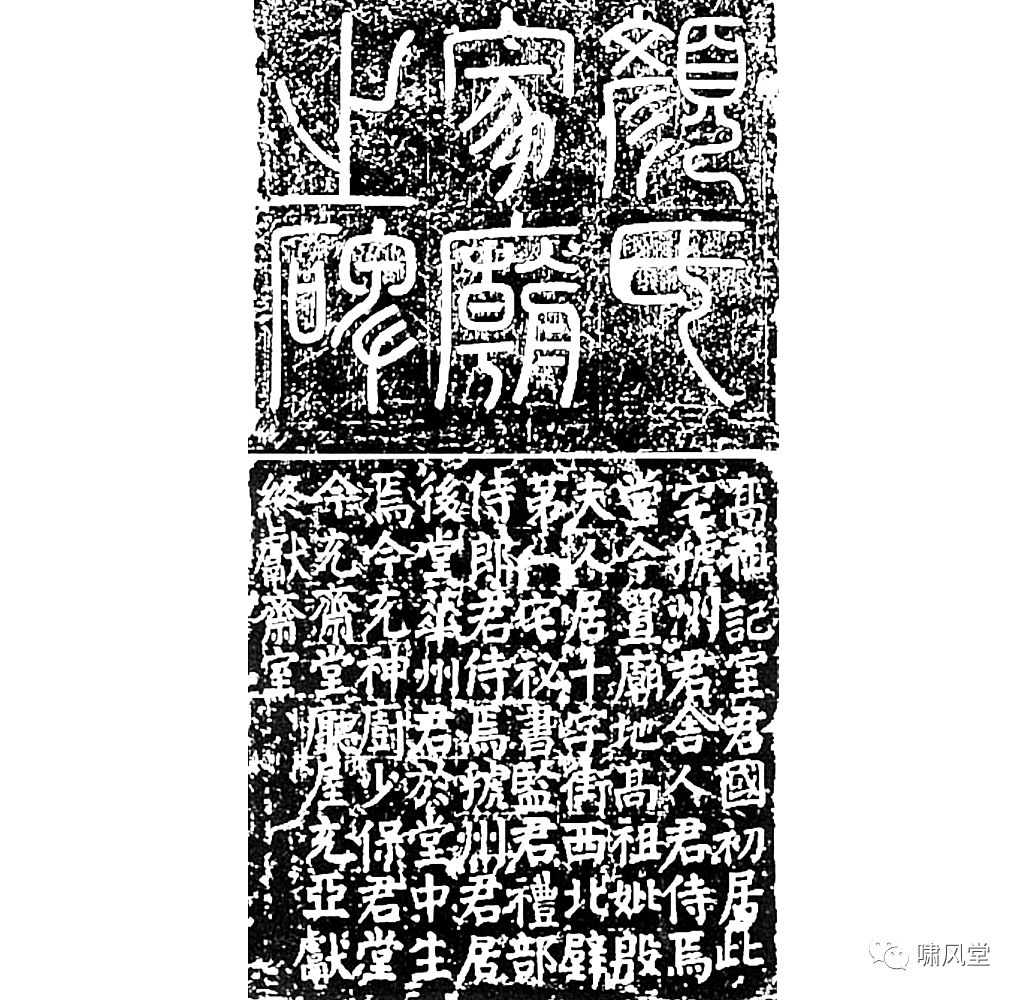 顏氏
家廟
之碑
高祖記室君國初居此
宅虢州君舍人君侍焉
堂今置廟地高祖妣殷
夫人居十字街西北壁
第一宅祕書監君禮部
侍郎君侍焉虢州君居
後堂華州君於堂中生
焉今充神廚少保君堂
今充齋堂廳屋充亞獻
終獻齋室
啸风堂